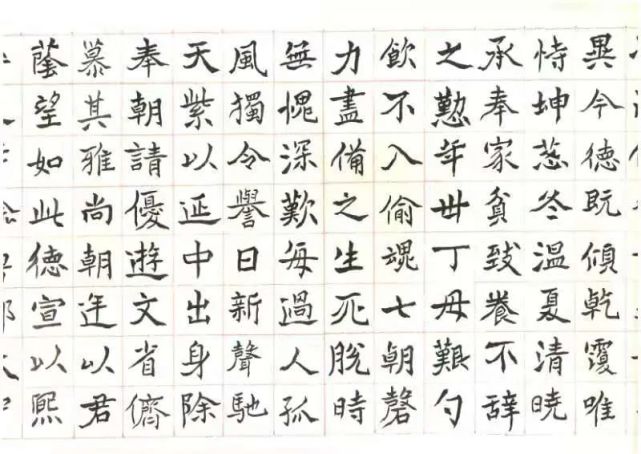 異今德既傾乾覆唯
恃坤慈冬溫夏清曉
承奉家貧致養不辞
之懃年丗丁母艱勺
飲不入偷魂七朝磬
力盡備之生死脫時
無愧深歎每過人孤
風獨令譽日新聲馳
天紫以延中出身除
奉朝請優遊文省儕
慕其雅尚朝廷以君
蔭望如此德宣以熙